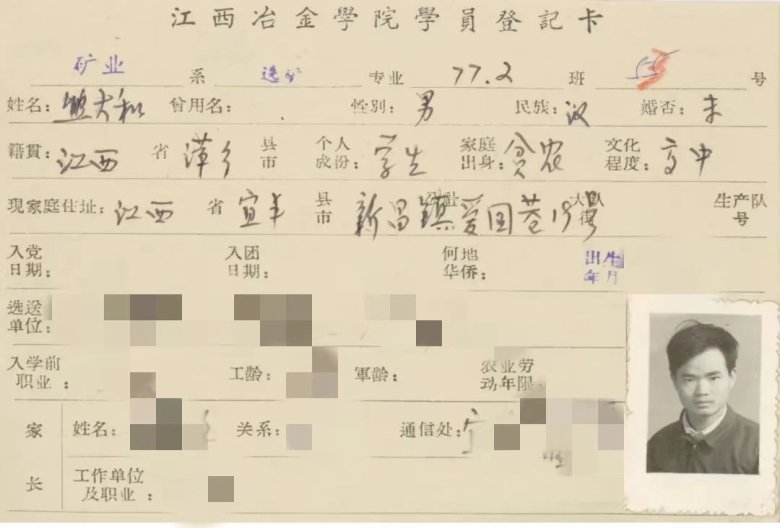 江西冶金學院學員登記卡
矿业 系 选矿 专业 77.2 班 号
姓名： 曾用名： 性别：男 民族：汉 婚否：未
籍貫：江西 省 萍乡 县市 个人成份：学生 家庭出身：贫农 文化程度：高中
現家庭住址：江西 省 宜丰 县市 新昌镇爱国巷19号 生产队号
入党日期： 入团日期： 何地华侨： 出生年月
选送单位：
入学前职业： 工龄： 軍龄： 农业劳动年限
家长 姓名： 关系： 通信处：
工作单位及职业：